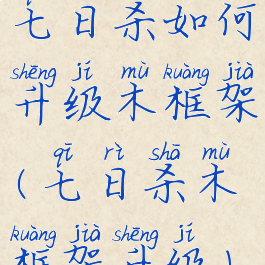 七日杀如何
shēng jí mù kuàng jià
升级木框架
qī rì shā mù
(七日杀木
kuàng jià shēng jí
框架升级)